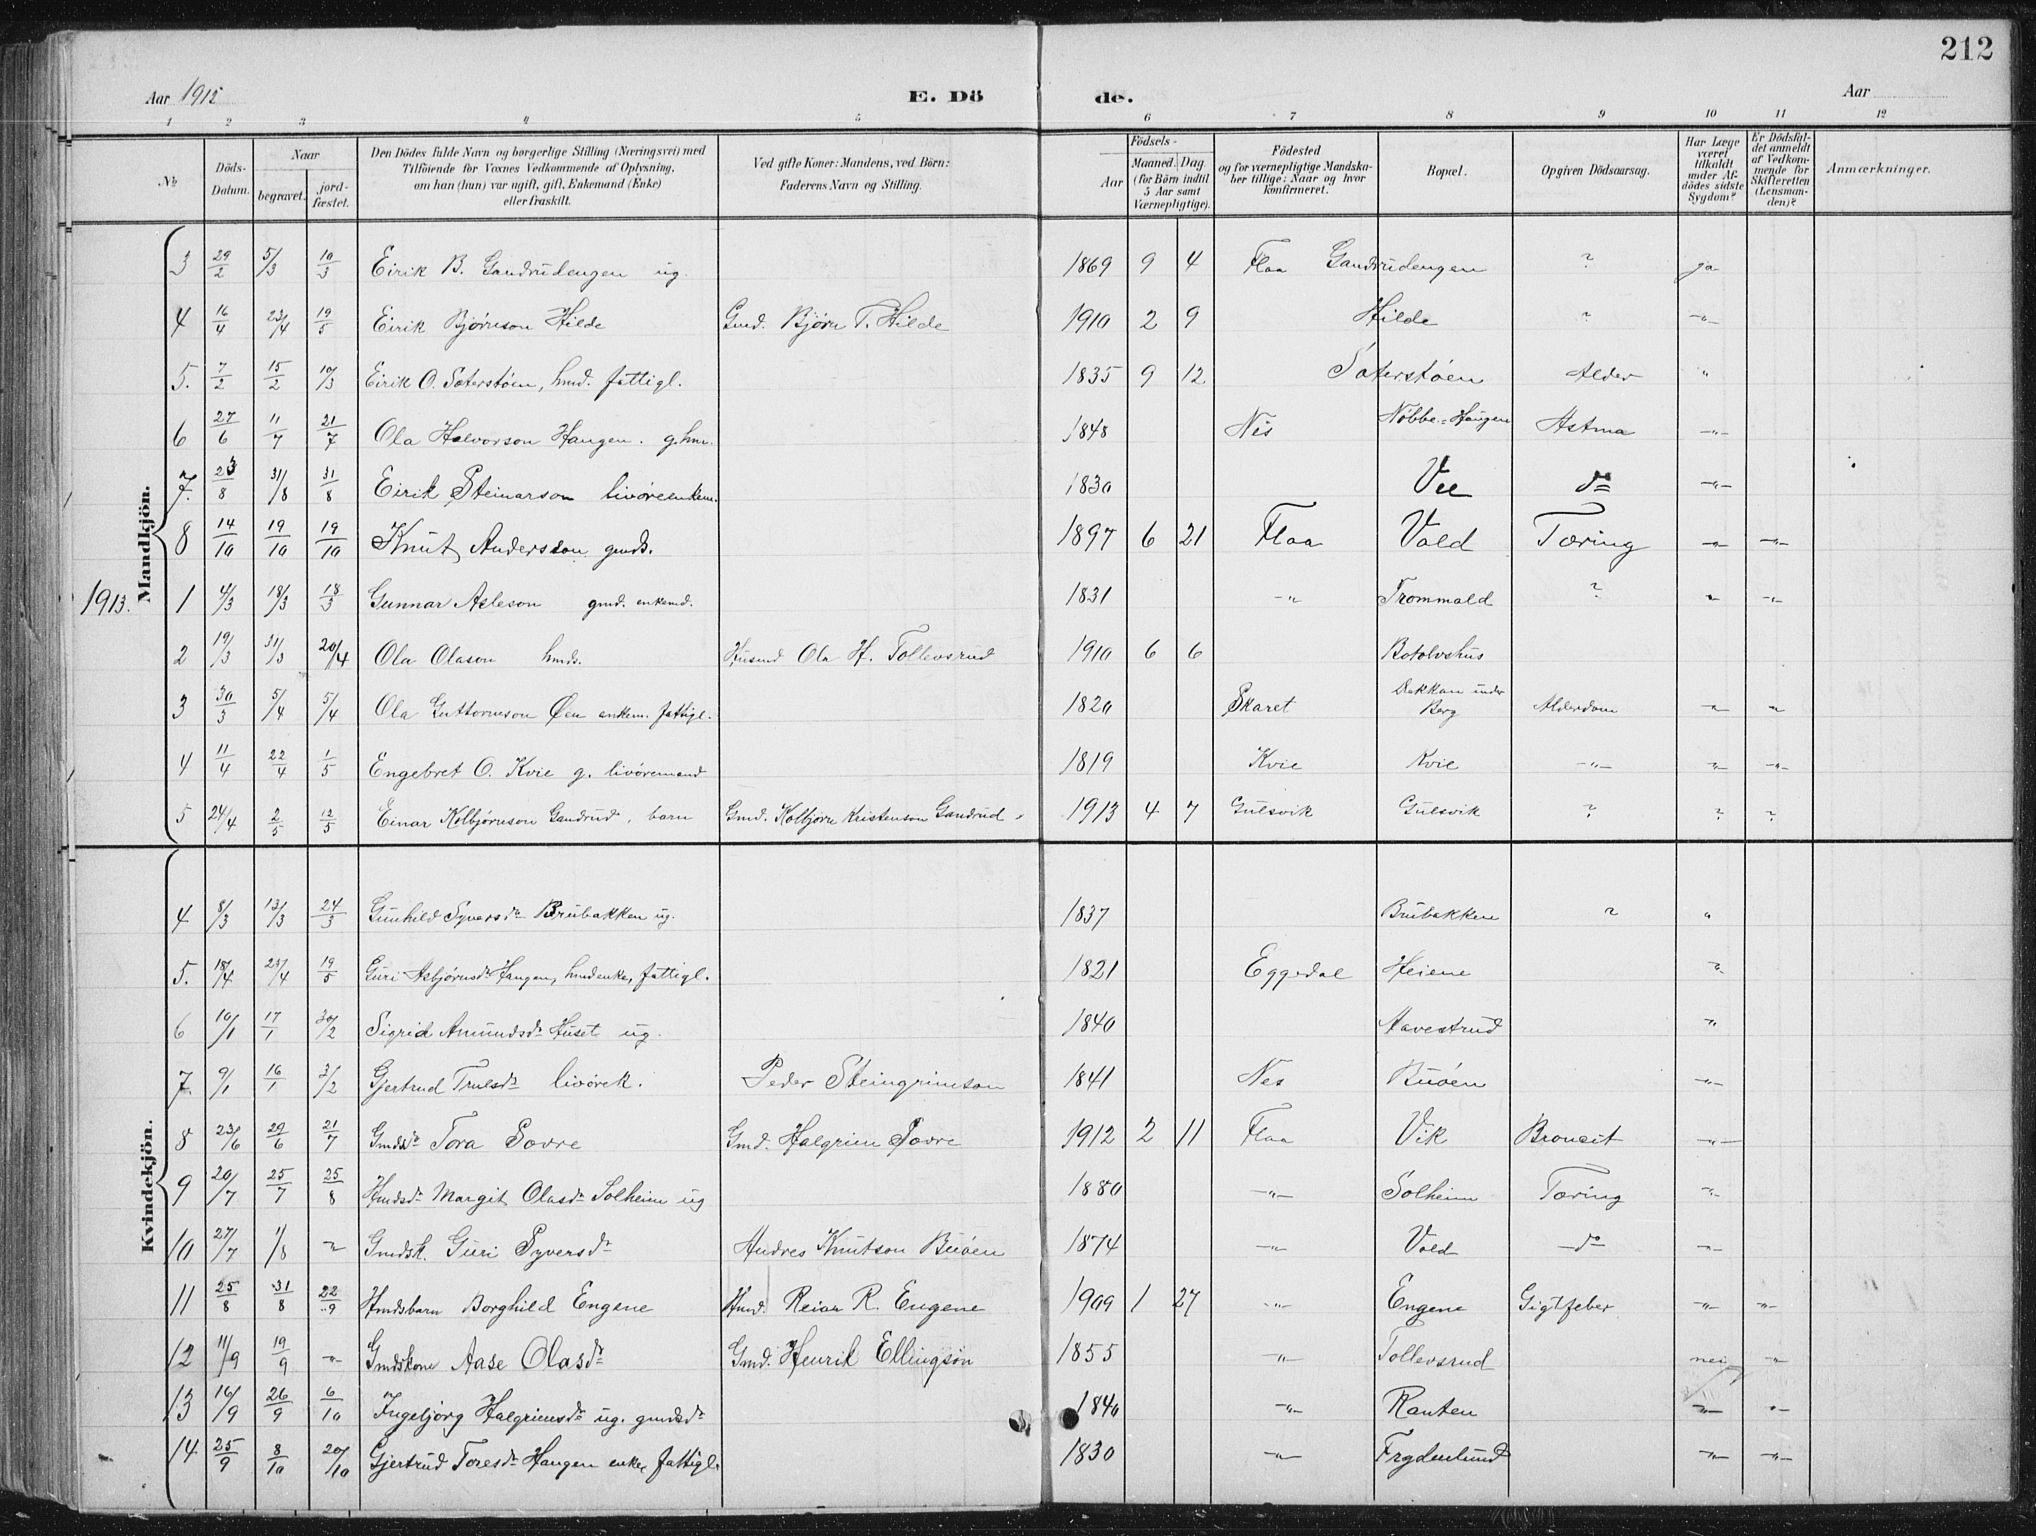 212
Aar 1912 E. Dö de. Aar
1 2 3 4 5 6 7 8 9 10 11 12
No. Döds-Datum. Naar begravet. jord-fæstet. Den Dödes fulde Navn og borgerlige Stilling (Næringsvei) med Tilföiende for Voxnes Vedkommende af Oplysning, om han (hun) var ugift, gift, Enkemand (Enke) eller fraskilt. Ved gifte Koner: Mandens, ved Börn: Faderens Navn og Stilling. Födsels- Aar Maaned. Dag. (for Börn indtil 5 Aar samt Værnepligtige). Födested og for værnepligtige Mandskaber tillige: Naar og hvor konfirmeret. Bopæl. Opgiven Dödsaarsag. Har Læge været tilkaldt under Afdödes sidste Sygdom? Er Dödsfaldet anmeldt af Vedkommende for Skifteretten (Lensmanden)? Anmærkninger.
Mandkjön.
3 29/2 5/3 10/3 Eirik B. Gandrudengen ug. 1869 9 4 Flaa Gandrudengen ? ja
4 16/4 23/4 19/5 Eirik Bjørnson Hilde Gmd. Bjørn T. Hilde 1910 2 9 Hilde ? -"-
5. 7/2 15/2 10/3 Eirik O. Sæterstøen, hmd. fattigl. 1835 9 12 Sæterstøen Alder "
6 27/6 11/7 21/7 Ola Halvorson Haugen. g. hm. 1848 Nes Nøbbe-Haugen Astma -"-
7. 23/8 31/8 31/8 Eirik Steinarson livøreenkem. 1830 Vee do -"-
8 14/10 19/10 19/10 Knut Andersson gmds. 1897 6 21 Flaa Vold Tæring -"- -"-
1913. 1 4/3 18/3 18/3 Gunnar Asleson gmd. enkemd. 1831 -"- Trommald ? " -"-
2 19/3 31/3 20/4 Ola Olason hmds. Husmd Ola H. Tollevsrud 1910 6 6 Botolvshus
3 30/3 5/4 5/4 Ola Guttormson Øen enkem. fattigl. 1820 Skaret Bakkan under Berg Alderdom -"- "
4 11/4 22/4 1/5 Engebret O. Kvie g. livøremand 1819 Kvie Kvie -"- -"- -"-
5 24/4 2/5 12/5 Einar Kolbjørnson Gandrud, barn Gmd. Kolbjørn Kristenson Gandrud 1913 4 7 Gulsvik Gulsvik ? ? ?
Kvindekjön.
4 8/3 13/3 24/3 Gunhild Syversdr Brubakken ug. 1837 Brubakken ? "
5. 18/4 25/4 19/5 Guri Asbjørnsdr Haugen, hmdenke, fattigl. 1821 Eggedal Heiene -"-
6 10/1 17/1 30/2 Sigrid Amundsdr Huset ug. 1840 Havestrud -"-
7. 9/1 16/1 3/2 Gjertrud Trulsdr livørek. Peder Steingrimson 1841 Nes Buøen -"-
8 23/6 29/6 21/7 Gmdsdr Tora Sovre Gmd. Halgrim Sovre 1912 2 11 Flaa Vik Broncit -"-
9 20/7 25/7 25/8 Hmdsdr Margit Olasdr Solheim ug 1880 -"- Solheim Tæring -"-
10 27/7 1/8 -"- Gmdsk. Guri Syversdr Andres Knutson Buøen 1874 -"- Vold -do- -"-
11 25/8 31/8 22/9 Hmdsbarn Borghild Engene Hmd. Reiar R. Engene 1909 1 27 -"- Engene Gigtfeber -"- -"-
12 11/9 19/9 -"- Gmdskone Aase Olasdr Gmd. Henrik Ellingson 1855 -"- Tollevsrud nei -"-
13 16/9 26/9 6/10 Ingebjørg Halgrimsdr ug. gmdsdr 1840 -"- Ranten -"- "
14. 25/9 8/10 20/10 Gjertrud Toresdr Haugen enke, fattigl. 1830 -"- Frydenlund -"- -"-